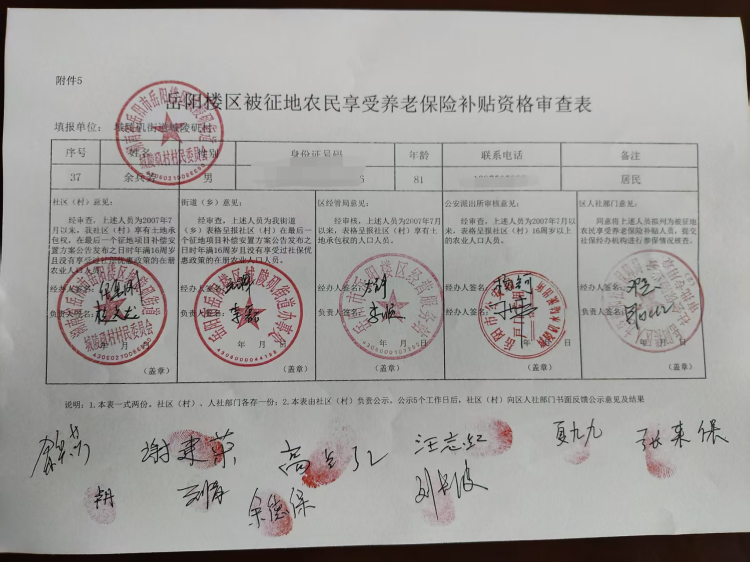 附件5
岳阳楼区被征地农民享受养老保险补贴资格审查表
填报单位： 城陵矶街道城陵矶村
序号 姓名 性别 身份证号码 年龄 联系电话 备注
37 余兵 男 5 81 居民
社区（村）意见：
经审查，上述人员为2007年7
月以来，我社区（村）享有土地承
包权，在最后一个征地项目补偿安
置方案公告发布之日时年满16周岁
且没有享受过社保优惠政策的在册
农业人口人员。
经办人签名：
负责人签名：
年 月
（盖章）
街道（乡）意见：
经审查，上述人员为我街道
（乡）表格呈报社区（村）在最后一
个征地项目补偿安置方案公告发布之
日时年满16周岁且没有享受过社保优
惠政策的在册农业人口人员。
年 月 日
（盖章）
区经管局意见：
经审核，上述人员为2007年7月
以来，表格呈报社区（村）享有土
地承包权的人口人员。
经办人签名：
负责人签名：
年 月 日
（盖章）
公安派出所审核意见：
经审查，上述人员为2007年7月以
来，表格呈报社区（村）16周岁以上
的农业人口人员。
经办人签名：
负责人签名：
（盖章）
区人社部门意见：
同意将上述人员拟列为被征地
农民享受养老保险补贴人员，提交
社保经办机构进行参保情况核查。
经办人签名：
负责人签名：
年 月 日
（盖章）
说明：1.本表一式两份，社区（村）、人社部门各存一份；2.本表由社区（村）负责公示，公示5个工作日后，社区（村）向区人社部门书面反馈公示意见及结果
谢建 汪志红 夏九九 张来保
余德保